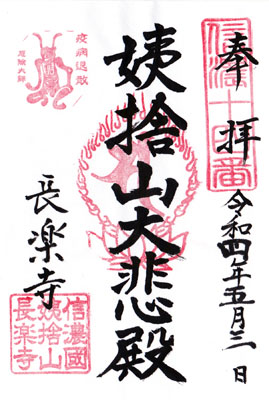 奉拝
信濃十番
令和四年五月三日
姨捨山大悲殿
疫病退散
厄除大師
長楽寺
信濃國
姨捨山
長楽寺